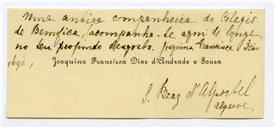 Uma antiga companheira do Colegio
de Bemfica, acompanha-te agora de longe
no seu profundo desgosto. Joaquina Francisca
Joaquina Francisca Dias d'Andrade e Sousa
S. Braz d'Alportel
Algarve